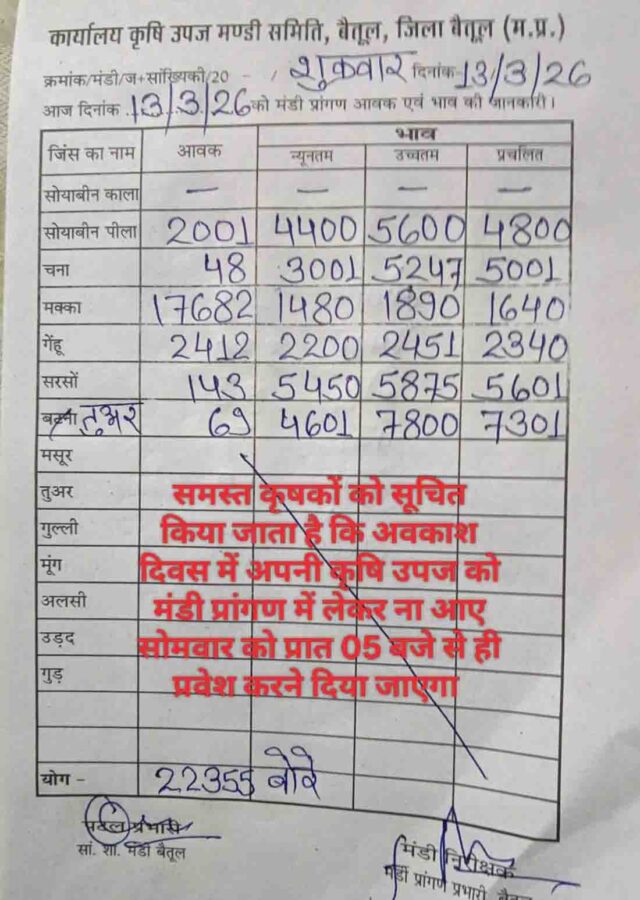 कार्यालय कृषि उपज मण्डी समिति, बैतूल, जिला बैतूल (म.प्र.)
क्रमांक/मंडी/ज+सांख्यिकी/20 - / शुक्रवार दिनांक 13/3/26
आज दिनांक 13/3/26 को मंडी प्रांगण आवक एवं भाव की जानकारी।
जिंस का नाम आवक भाव
न्यूनतम उच्चतम प्रचलित
सोयाबीन काला — — — —
सोयाबीन पीला 2001 4400 5600 4800
चना 48 3001 5247 5001
मक्का 17682 1480 1890 1640
गेंहू 2412 2200 2451 2340
सरसों 143 5450 5875 5601
तुअर 69 4601 7800 7301
मसूर
तुअर
गुल्ली
मूंग
अलसी
उड़द
गुड़
समस्त कृषकों को सूचित
किया जाता है कि अवकाश
दिवस में अपनी कृषि उपज को
मंडी प्रांगण में लेकर ना आए
सोमवार को प्रात 05 बजे से ही
प्रवेश करने दिया जाएगा
योग - 22355 बोरे
प्रभारी
सां. शा. मंडी बैतूल
मंडी निरीक्षक
मंडी प्रांगण प्रभारी, बैतूल